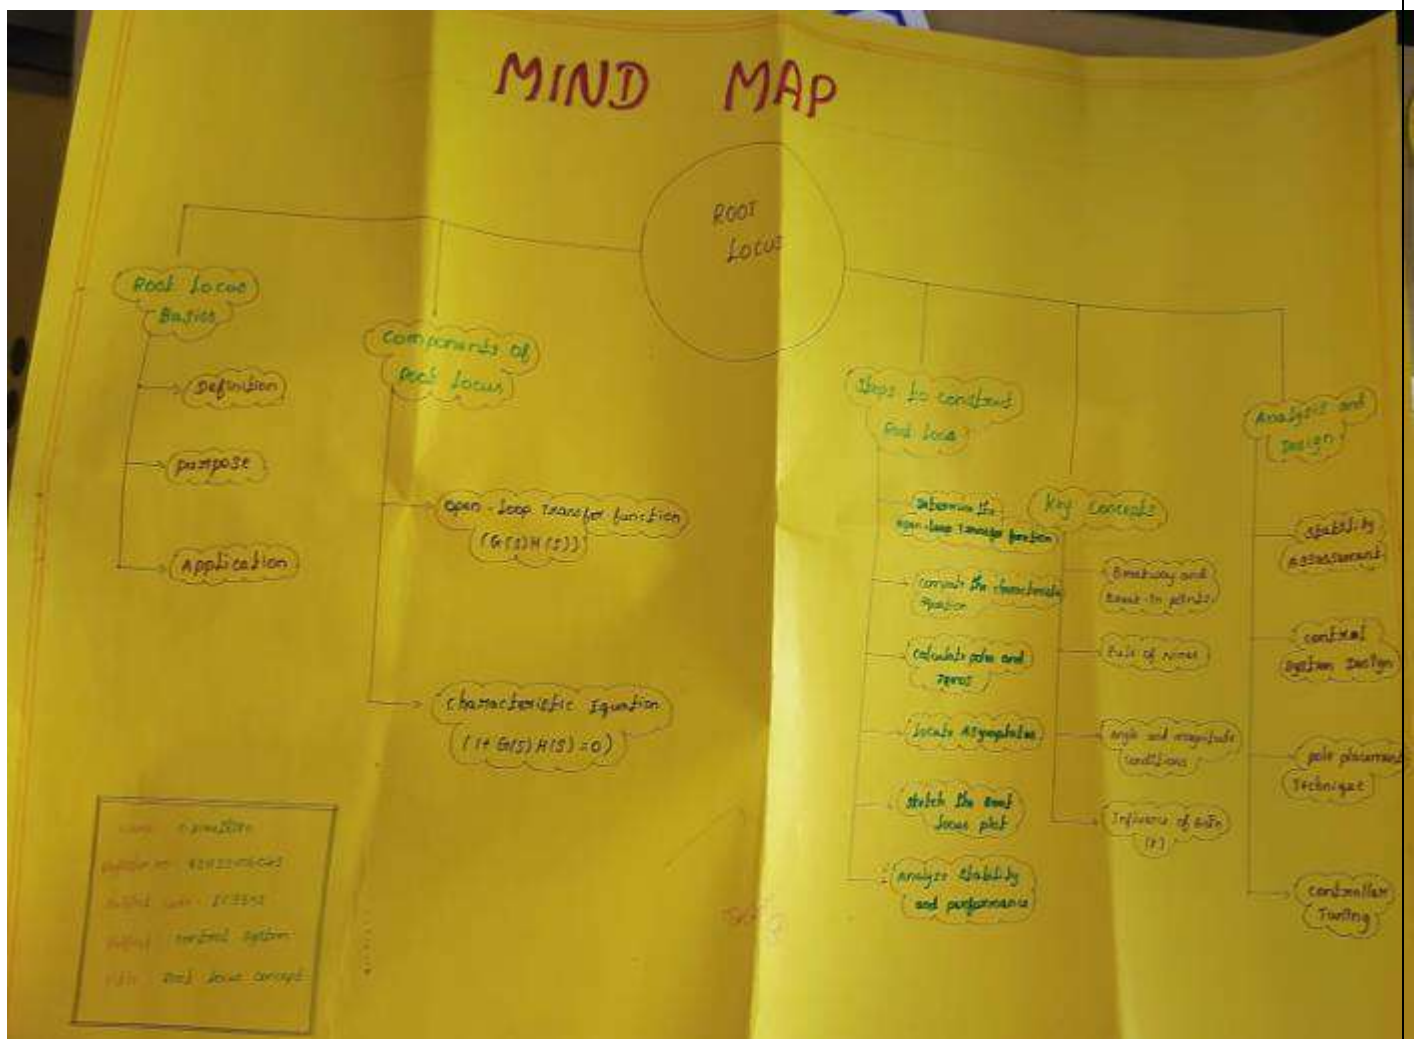 MIND MAP
ROOT
LOCUS
Root Locus
Basics
Definition
purpose
Application
Components of
Root Locus
open-Loop Transfer function
(G(S)H(S))
characteristic Equation
(1+ G(S)H(S)=0)
Steps to construct
Root Locus
Determine the
open-loop Transfer function
compute the characteristic
Equation
calculate poles and
zeros
Locate Asymptotes
sketch the Root
locus plot
Analyze Stability
and performance
Key Concepts
Breakway and
Break-In points
Rule of
Angle and magnitude
conditions
Influence of Gain
(K)
Analysis and
Design
stability
Assessment
control
System Design
pole placement
Technique
controller
Tuning
control System
Root Locus concept